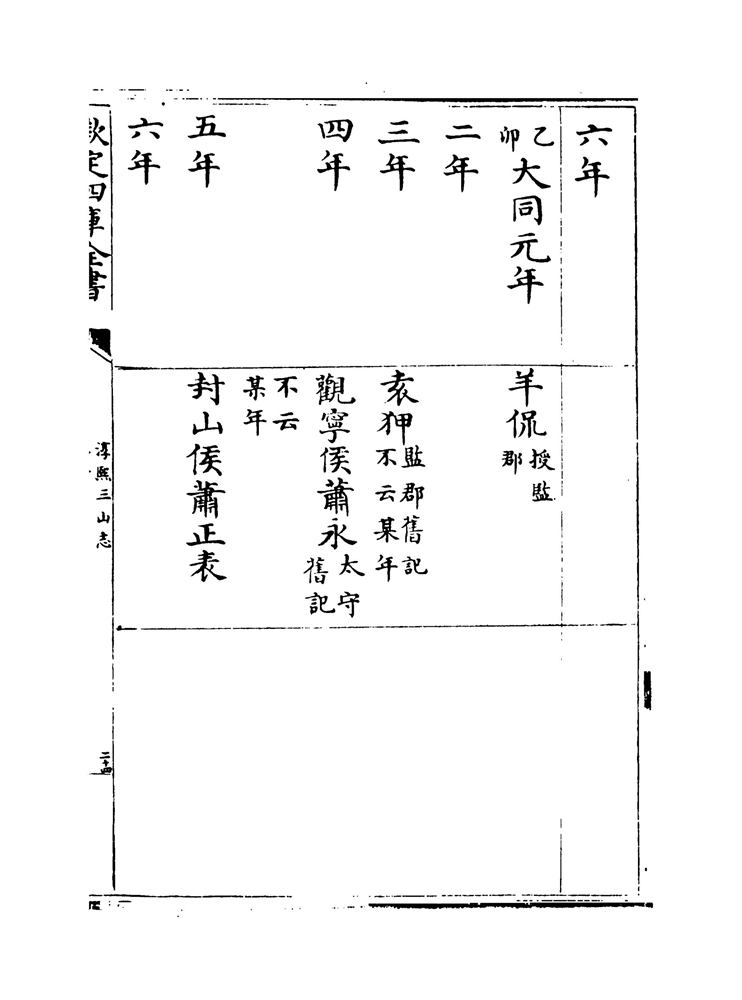 六年
乙卯大同元年
羊侃授監郡
二年
三年
袁狎監郡舊記不云某年
四年
觀寧侯蕭永太守舊記
不云某年
五年
封山侯蕭正表
六年
欽定四庫全書
淳熙三山志
二十四